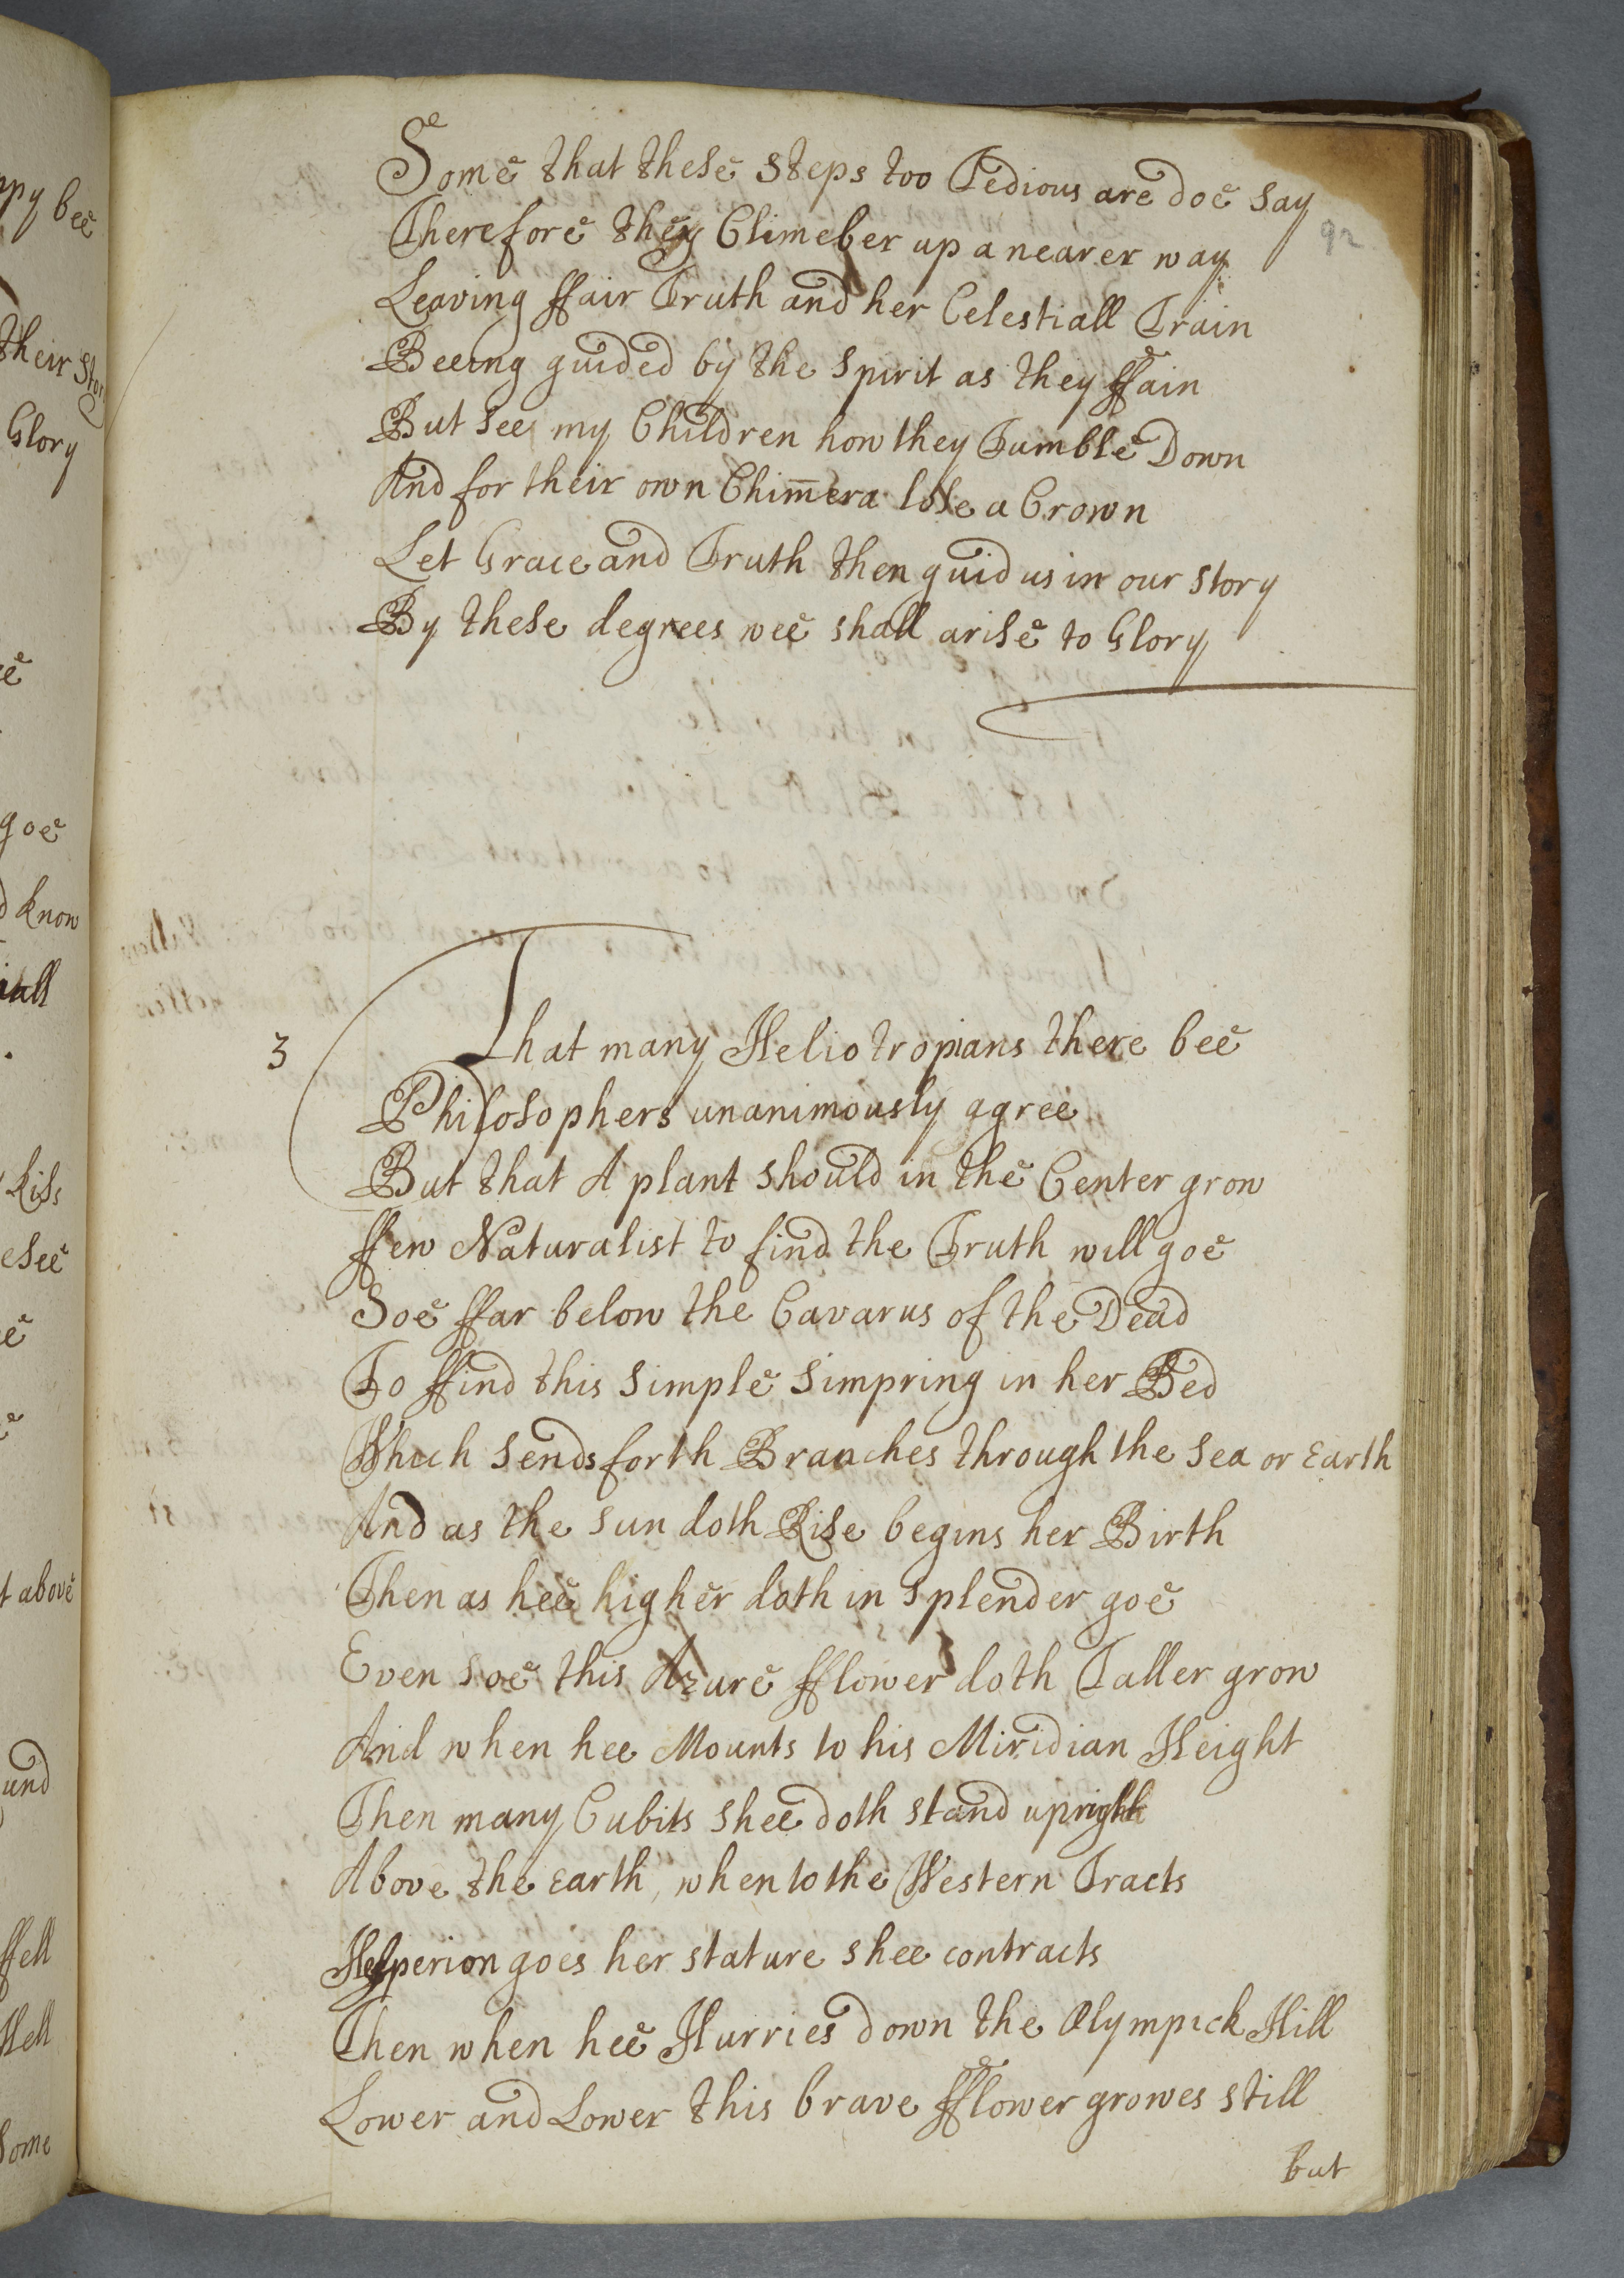 ppy bee
their Stor
Glory
goe
know
Kiss
esee
t above
und
ffell
Hell
Some
Some that these Steps too Tedious are doe say
92
Therefore they Climeber up a nearer way
Leaving ffair Truth and her Celestiall Train
Beeing guided by the Spirit as they ffain
But see my Children how they Tumble Down
And for their own Chim̅era lose a Crown
Let Grace and Truth then guid us in our story
By these degrees wee shall arise to Glory
3 That many Heliotropians there bee
Philosophers unanimously agree
But that A plant should in the Center grow
ffew Naturalist to find the Truth will goe
Soe ffar below the Cavarus of the Dead
To ffind this simple simpring in her Bed
Which sends forth Branches through the Sea or Earth
And as the Sun doth Rise begins her Birth
Then as hee higher doth in splender goe
Even soe this Azure fflower doth Taller grow
And when hee Mounts to his Miridian Height
Then many Cubits shee doth stand upright
Above the Earth, when to the Western Tracts
Hesperion goes her stature shee contracts
Then when hee Hurries down the Olympick Hill
Lower and Lower this brave fflower growes still
but